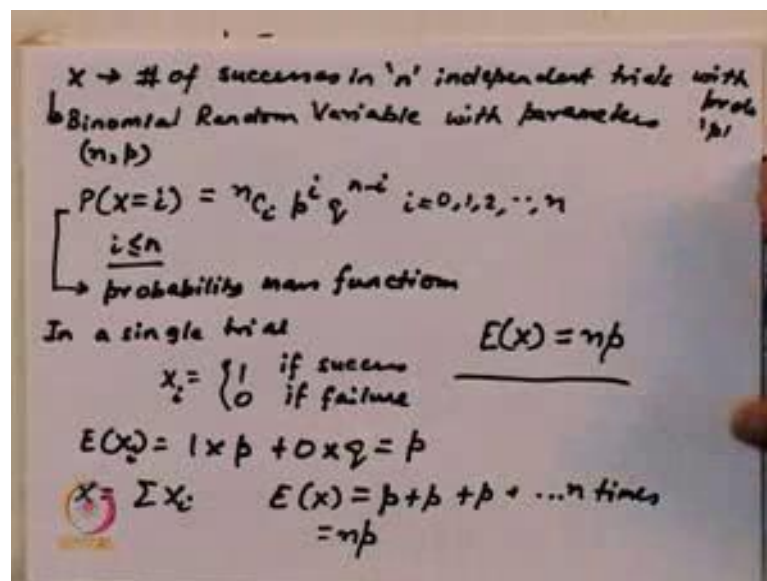 X → # of successes in 'n' independent trials with prob 'p'
Binomial Random Variable with parameters
(n, p)
P(X=i) = ⁿCᵢ pⁱ qⁿ⁻ⁱ i=0,1,2,..,n
i≤n
→ probability mass function
In a single trial
E(X) = np
Xᵢ = { 1 if success
0 if failure
E(Xᵢ) = 1×p + 0×q = p
X = ΣXᵢ E(X) = p+p+p+ ...n times
= np